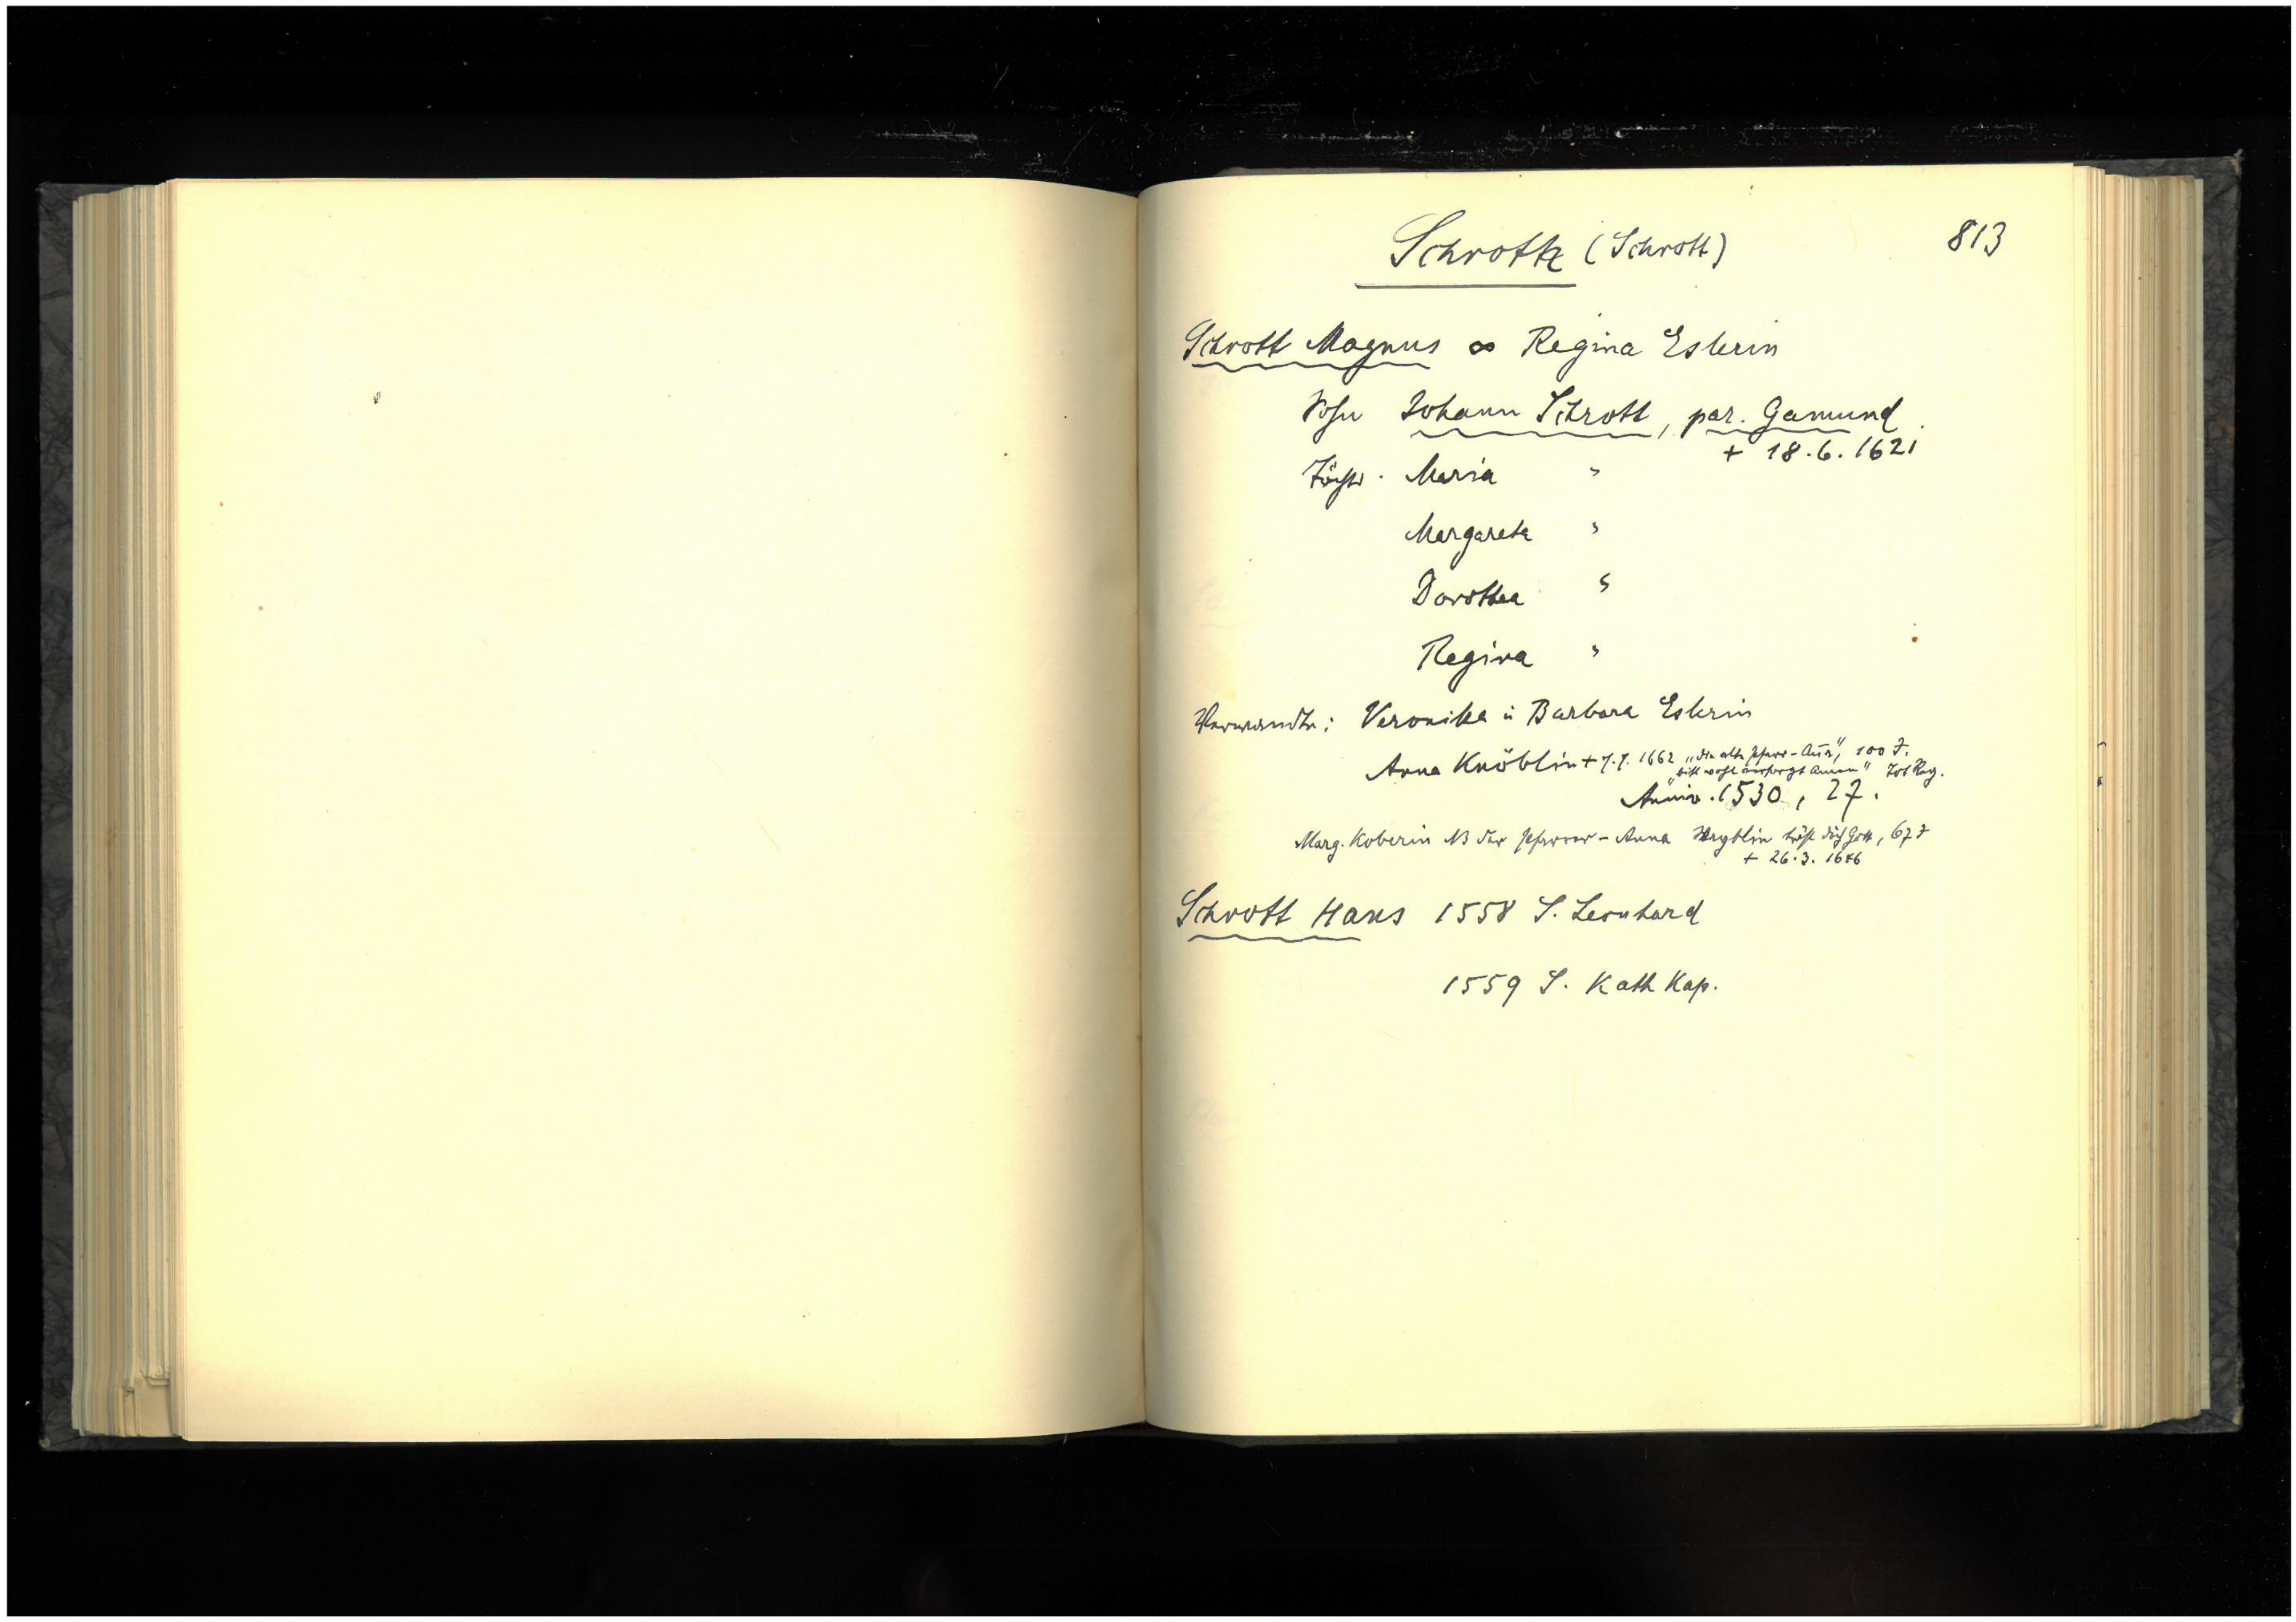 Schrott (Schrott) 813
Schrott Magnus ∞ Regina Eslerin
Sohn Johann Schrott, par. Gamund
+ 18.6.1621
Töcht. Maria "
Margareta "
Dorothea "
Regina "
Verwandte: Veronika u Barbara Eslerin
Anna Knöblin + 7.7.1662 „die alte Pfarr-Anna", 100 J.
"
Anniv. 1530, 27.
Marg. Koberin NB der Pfarrer-Anna tröst dich Gott, 67 J
+ 26.3.1646
Schrott Hans 1558 S. Leonhard
1559 S. Kath Kap.